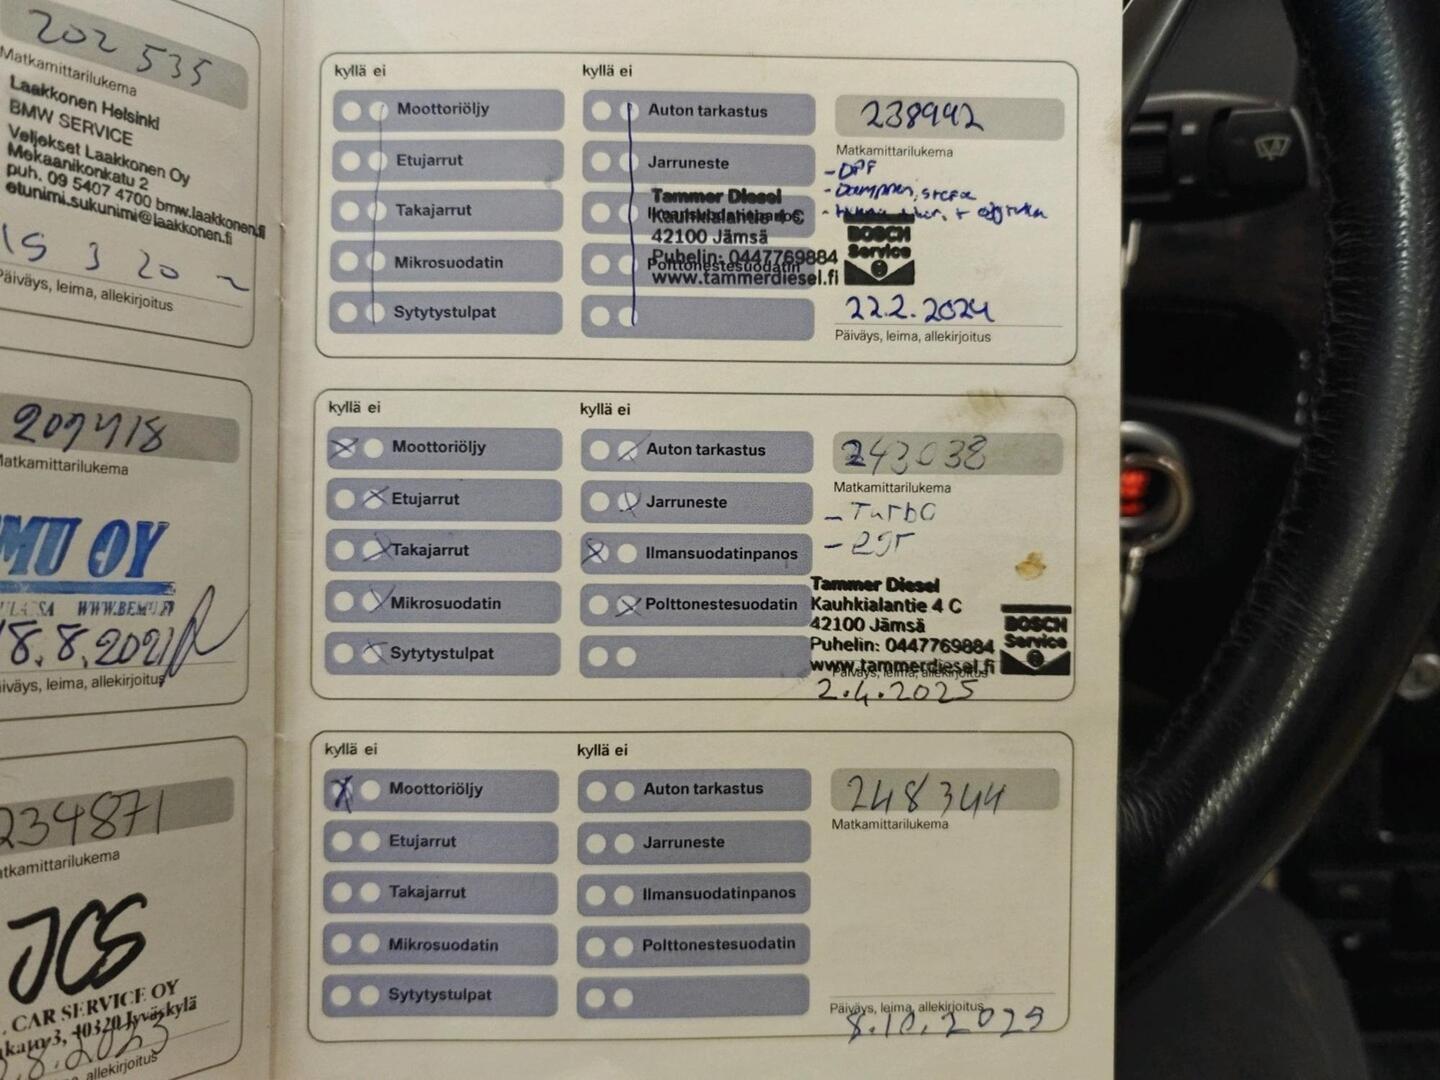 202 535
Matkamittarilukema
Laakkonen Helsinki
BMW SERVICE
Veljekset Laakkonen Oy
Mekaanikonkatu 2
puh. 09 5407 4700 bmw.laakkonen.fi
etunimi.sukunimi@laakkonen.fi
Päiväys, leima, allekirjoitus
Matkamittarilukema
MU OY
WWW.BEMU.FI
18.8.2021
Päiväys, leima, allekirjoitus
234871
Matkamittarilukema
JCS
. CAR SERVICE OY
3, 40320 Jyväskylä
.8.2023
allekirjoitus
kyllä ei
kyllä ei
Moottoriöljy
Auton tarkastus
238992
Etujarrut
Jarruneste
Matkamittarilukema
- DPF
Takajarrut
Ilmansuodatinpanos
Mikrosuodatin
Polttonestesuodatin
Sytytystulpat
Tammer Diesel
Kauhkialantie 4 C
42100 Jämsä
Puhelin: 0447769884
www.tammerdiesel.fi
BOSCH
Service
22.2.2024
Päiväys, leima, allekirjoitus
kyllä ei
kyllä ei
Moottoriöljy
Auton tarkastus
243038
Etujarrut
Jarruneste
Matkamittarilukema
- Turbo
Takajarrut
Ilmansuodatinpanos
- egr
Mikrosuodatin
Polttonestesuodatin
Sytytystulpat
Tammer Diesel
Kauhkialantie 4 C
42100 Jämsä
Puhelin: 0447769884
www.tammerdiesel.fi
BOSCH
Service
Päiväys, leima, allekirjoitus
2.4.2025
kyllä ei
kyllä ei
Moottoriöljy
Auton tarkastus
248344
Etujarrut
Jarruneste
Matkamittarilukema
Takajarrut
Ilmansuodatinpanos
Mikrosuodatin
Polttonestesuodatin
Sytytystulpat
Päiväys, leima, allekirjoitus
8.10.2025